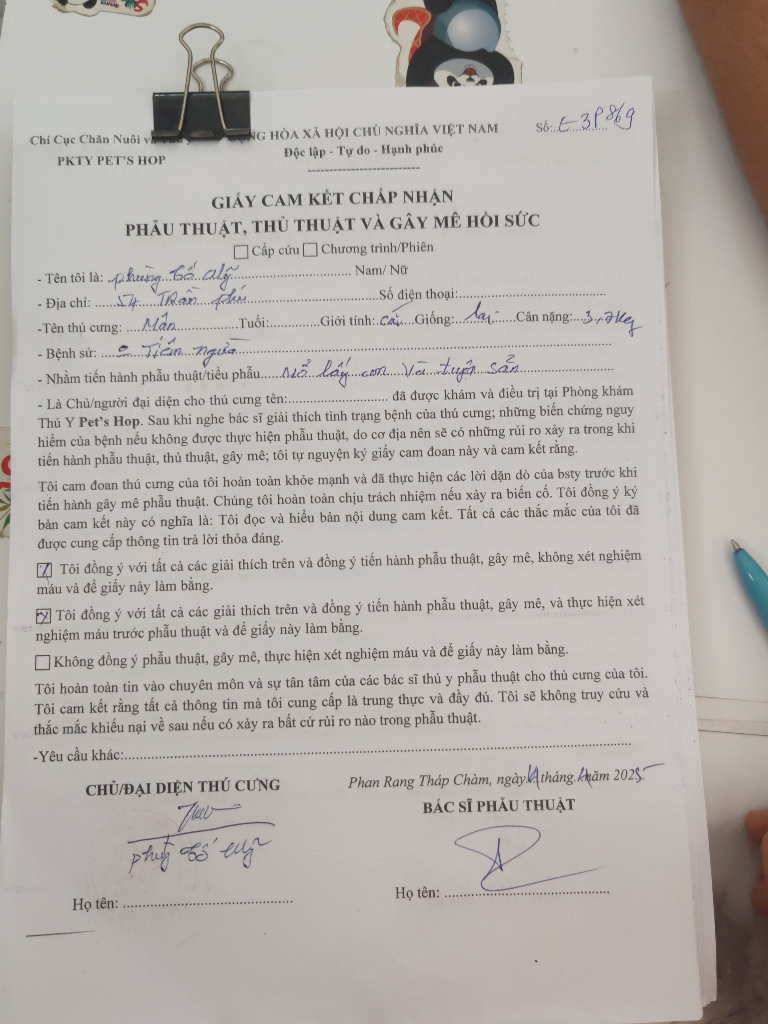 Chi Cục Chăn Nuôi và HÒA XÃ HỘI CHỦ NGHĨA VIỆT NAM Số:
PKTY PET'S HOP Độc lập - Tự do - Hạnh phúc
GIẤY CAM KẾT CHẤP NHẬN
PHẪU THUẬT, THỦ THUẬT VÀ GÂY MÊ HỒI SỨC
☐ Cấp cứu ☐ Chương trình/Phiên
- Tên tôi là: Phùng Tố Mỹ Nam/ Nữ
- Địa chỉ: 54 Trần Phú Số điện thoại:
-Tên thú cưng: Mần Tuổi: Giới tính: cái Giống: lai Cân nặng: 3,7kg
- Bệnh sử:
- Nhằm tiến hành phẫu thuật/tiểu phẫu Mổ lấy con và tuyệt sản
- Là Chủ/người đại diện cho thú cưng tên: đã được khám và điều trị tại Phòng khám
Thú Y Pet's Hop. Sau khi nghe bác sĩ giải thích tình trạng bệnh của thú cưng; những biến chứng nguy
hiểm của bệnh nếu không được thực hiện phẫu thuật, do cơ địa nên sẽ có những rủi ro xảy ra trong khi
tiến hành phẫu thuật, thủ thuật, gây mê; tôi tự nguyện ký giấy cam đoan này và cam kết rằng.
Tôi cam đoan thú cưng của tôi hoàn toàn khỏe mạnh và đã thực hiện các lời dặn dò của bsty trước khi
tiến hành gây mê phẫu thuật. Chúng tôi hoàn toàn chịu trách nhiệm nếu xảy ra biến cố. Tôi đồng ý ký
bản cam kết này có nghĩa là: Tôi đọc và hiểu bản nội dung cam kết. Tất cả các thắc mắc của tôi đã
được cung cấp thông tin trả lời thỏa đáng.
☑ Tôi đồng ý với tất cả các giải thích trên và đồng ý tiến hành phẫu thuật, gây mê, không xét nghiệm
máu và để giấy này làm bằng.
☑ Tôi đồng ý với tất cả các giải thích trên và đồng ý tiến hành phẫu thuật, gây mê, và thực hiện xét
nghiệm máu trước phẫu thuật và để giấy này làm bằng.
☐ Không đồng ý phẫu thuật, gây mê, thực hiện xét nghiệm máu và để giấy này làm bằng.
Tôi hoàn toàn tin vào chuyên môn và sự tận tâm của các bác sĩ thú y phẫu thuật cho thú cưng của tôi.
Tôi cam kết rằng tất cả thông tin mà tôi cung cấp là trung thực và đầy đủ. Tôi sẽ không truy cứu và
thắc mắc khiếu nại về sau nếu có xảy ra bất cứ rủi ro nào trong phẫu thuật.
-Yêu cầu khác:
CHỦ/ĐẠI DIỆN THÚ CƯNG Phan Rang Tháp Chàm, ngày tháng năm 2025
BÁC SĨ PHẪU THUẬT
Phùng Tố Mỹ
Họ tên: Họ tên: